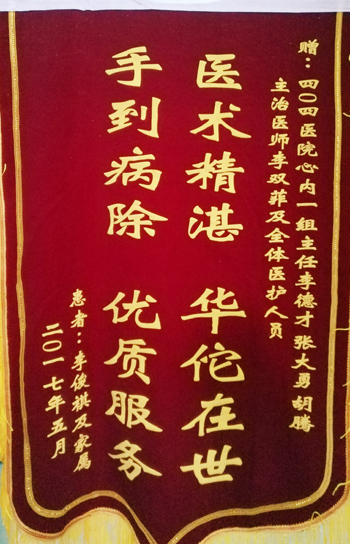 赠：四〇四医院心内一组主任李德才 张大勇 胡腾
主治医师李双菲及全体医护人员
医术精湛 华佗在世
手到病除 优质服务
患者：李俊祺及家属
二〇一七年五月